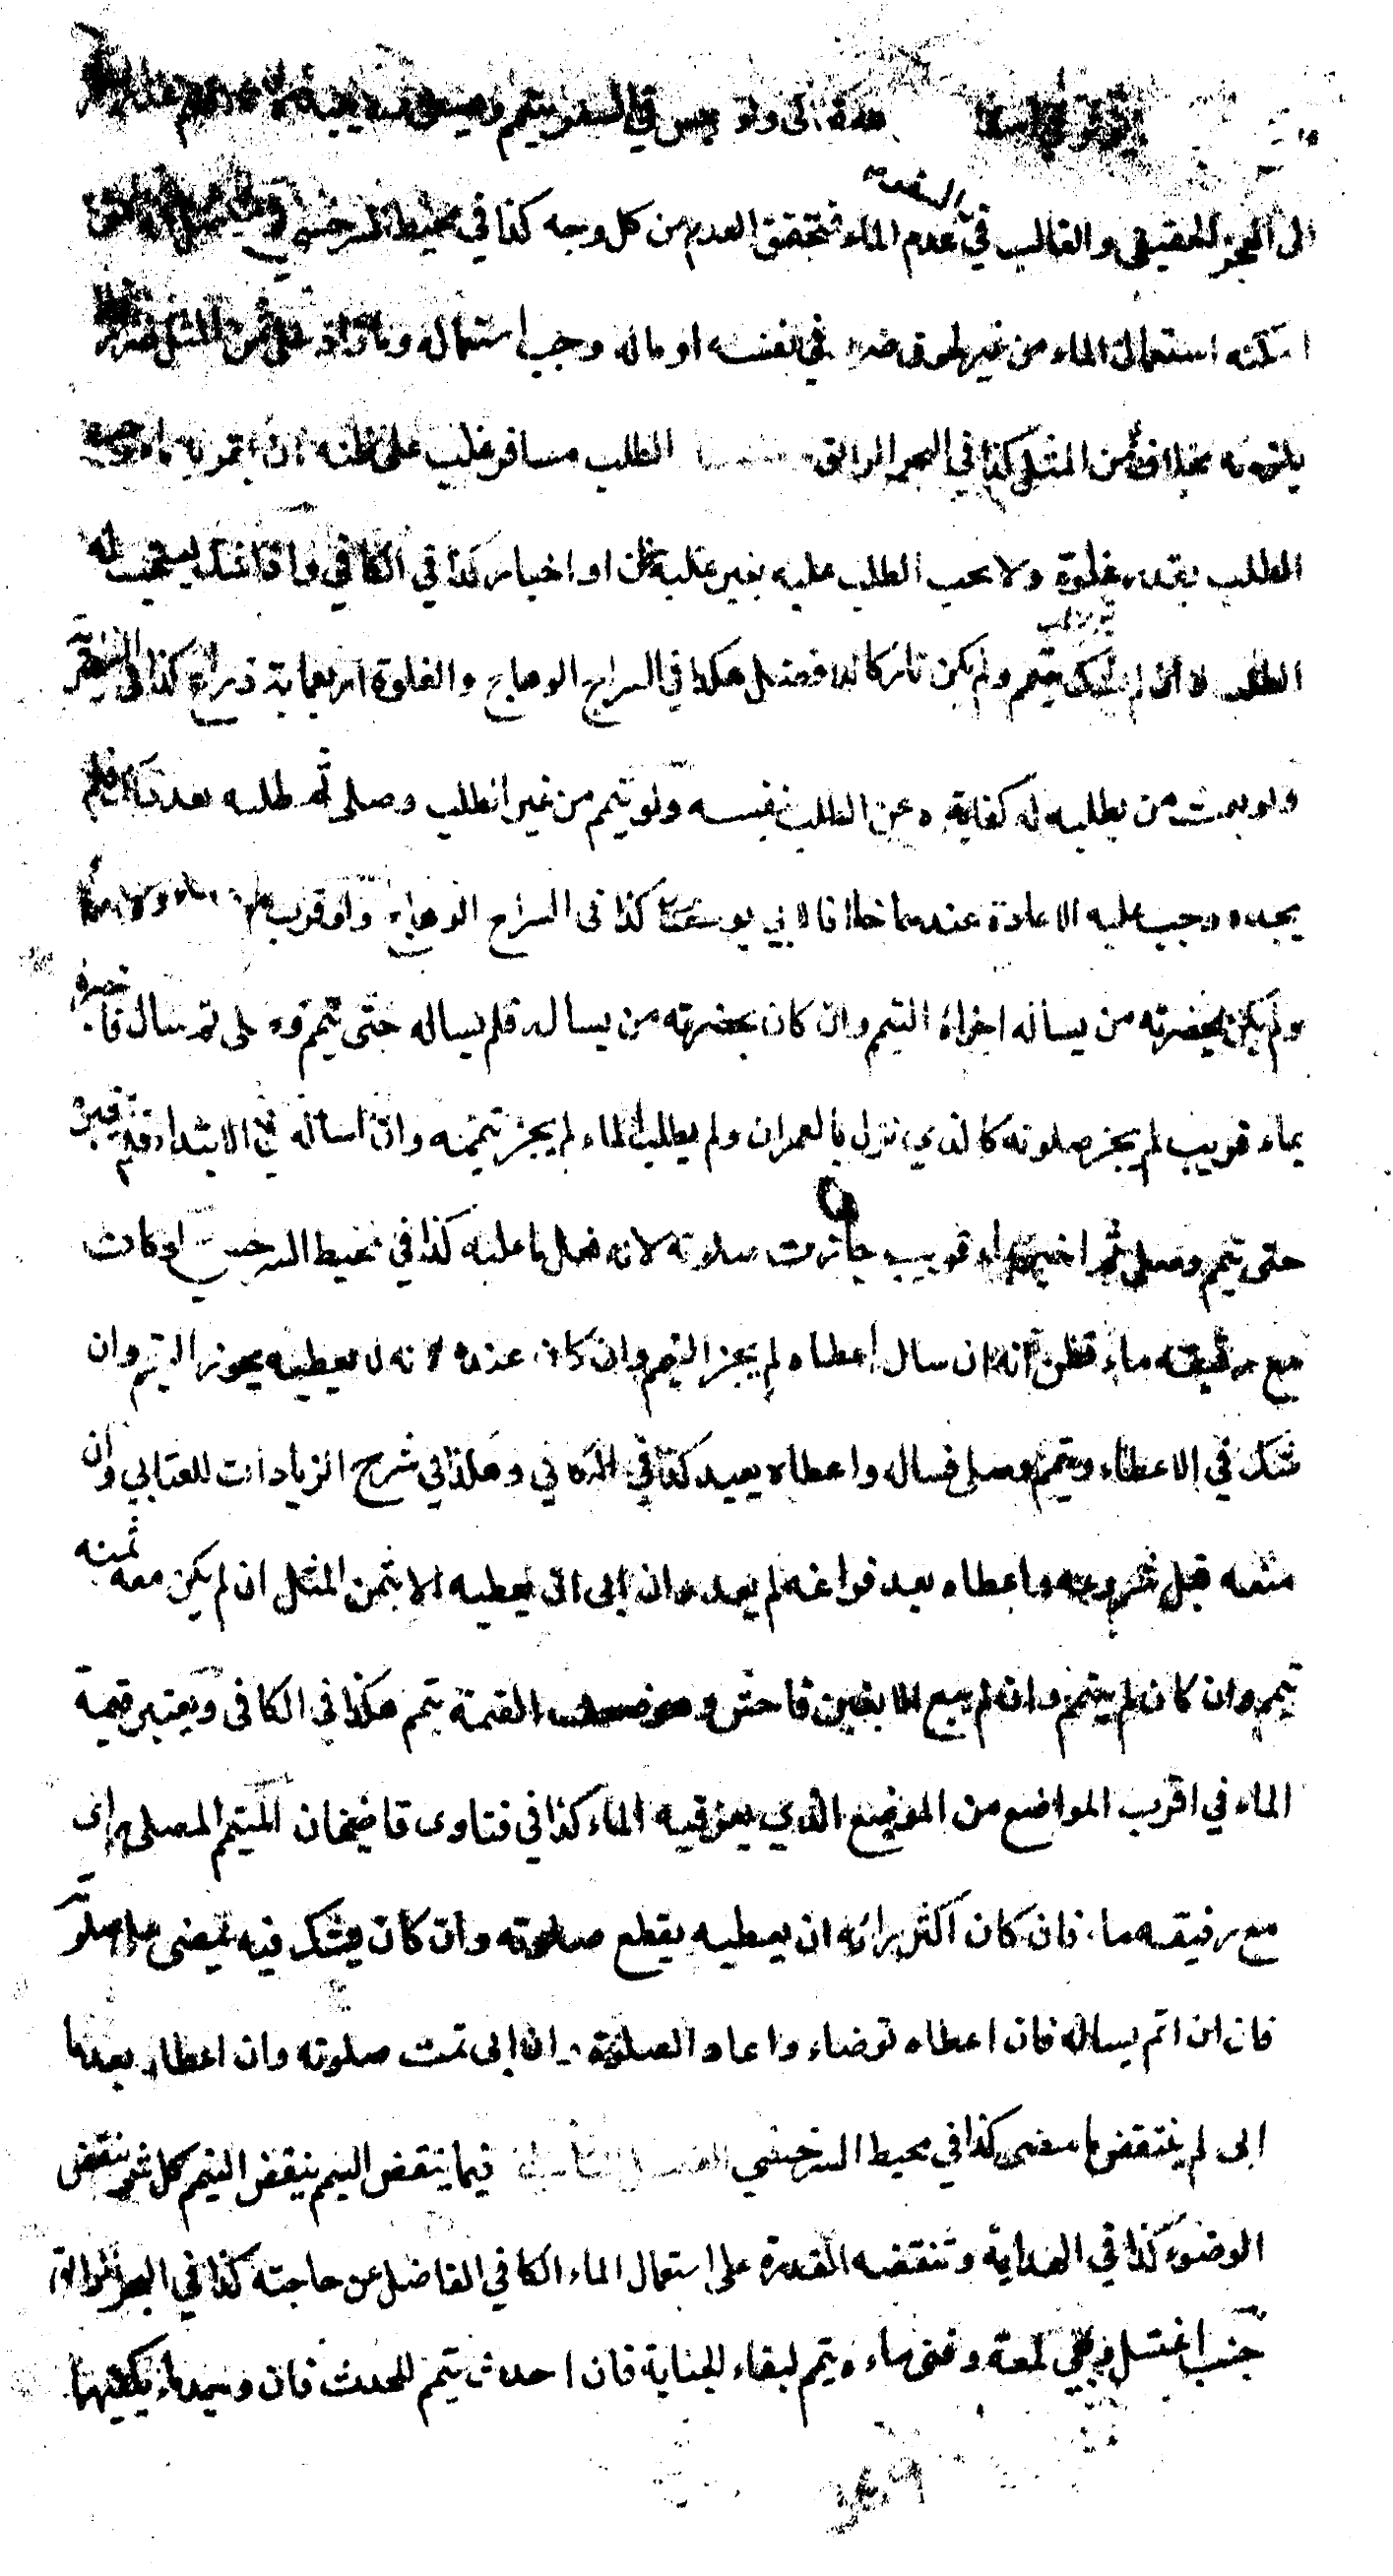 ولو حبس في السفر يتيمم ويصلي ولا يعيد لانه انضم
الى العجز الحقيقي والغالب في السفر عدم الماء فتحقق العدم من كل وجه كذا في محيط السرخسي
امكنه استعمال الماء من غير لحوق ضرر في نفسه او ماله وجب استعماله وما زاد على ثمن المثل ضرر
يلزمه بخلاف ثمن المثل كذا في البحر الرائق الطلب مسافر غلب على ظنه ان بقربه ماء وجب
الطلب بقدر غلوة ولا يجب الطلب عليه بغير غلبة ظن او اخبار كذا في الكافي واذا شك يستحب له
الطلب وان لم يشك يتيمم ولم يكن تاركا للافضل هكذا في السراج الوهاج والغلوة اربعماية ذراع كذا في
ولو بعث من يطلبه له كفاية ه عن الطلب بنفسه ولو تيمم من غير الطلب وصلى ثم طلبه بعد ذلك فلم
يجده وجب عليه الاعادة عندهما خلافا لابي يوسف كذا في السراج الوهاج ولو قرب من الماء ولا
ولم يكن بحضرته من يساله اجزاه التيمم وان كان بحضرته من يساله فلم يساله حتى تيمم وصلى ثم سال فاخبره
بماء قريب لم يجز صلوته كالذي نزل بالعمران ولم يطلب الماء لم يجز تيممه وان اساله في الابتداء فلم يخبره
حتى تيمم وصلى ثم اخبره بماء قريب جازت صلوته لانه فعل ما عليه كذا في محيط السرخسي لو كان
مع رفيقه ماء فظن انه ان سال اعطاه لم يجز التيمم وان كان عنده انه لا يعطيه يجوز التيمم وان
شك في الاعطاء وتيمم وصلى فساله واعطاه يعيد كذا في الكافي وهكذا في شرح الزيادات للعتابي وان
منعه قبل شروعه واعطاه بعد فراغه لم يعد وان ابى ان يعطيه الا بثمن المثل ان لم يكن معه ثمنه
تيمم وان كان لم يتيمم وان لم يبع الا بغبن فاحش وهو ضعف القيمة يتيمم هكذا في الكافي ويعتبر قيمة
الماء في اقرب المواضع من الموضع الذي يعز فيه الماء كذا في فتاوى قاضيخان المتيمم المصلي راى
مع رفيقه ماء فان كان اكثر برائه ان يعطيه يقطع صلوته وان كان يشك فيه يمضي على صلوته
فان اتم يساله فان اعطاه توضاء واعاد الصلوة وان ابى تمت صلوته وان اعطاه بعدما
ابى لم ينتقض ما مضى كذا في محيط السرخسي الفصل الثاني فيما ينتقض التيمم ينقض التيمم كل شيء ينقض
الوضوء كذا في الهداية وتنقضه القدرة على استعمال الماء الكافي الفاضل عن حاجته كذا في البحر الرائق
جنب اغتسل وبقي لمعة وفنى ماءه يتيمم لبقاء الجنابة فان احدث يتيمم للحدث فان وجد ماء يكفيهما